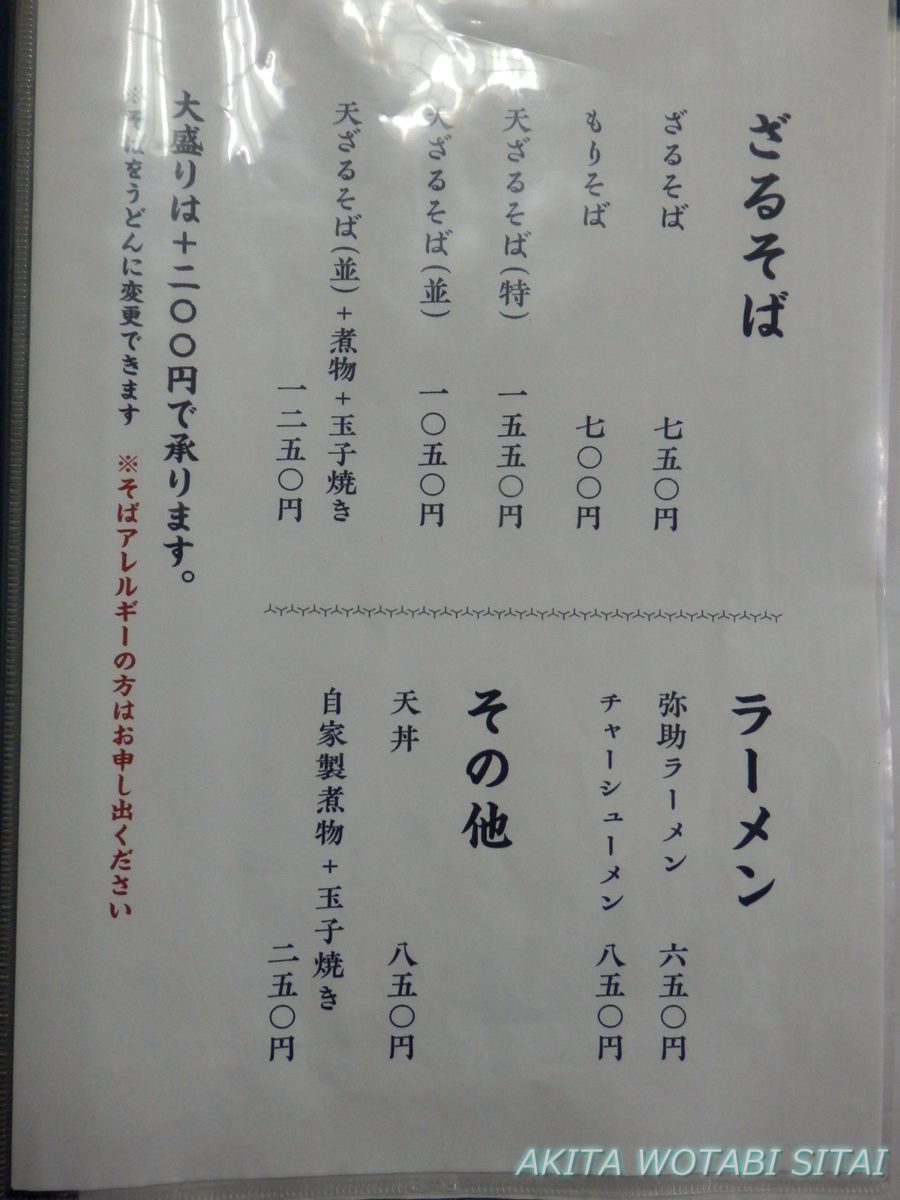 ざるそば
ざるそば 七五〇円
もりそば 七〇〇円
天ざるそば(特) 一五五〇円
天ざるそば(並) 一〇五〇円
天ざるそば(並)+煮物+玉子焼き
一二五〇円
大盛りは+二〇〇円で承ります。
※そばをうどんに変更できます ※そばアレルギーの方はお申し出ください
ラーメン
弥助ラーメン 六五〇円
チャーシューメン 八五〇円
その他
天丼 八五〇円
自家製煮物+玉子焼き
二五〇円
AKITA WOTABI SITAI